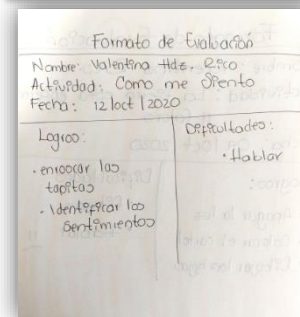 Formato de Evaluación
Nombre: Valentina Hdz. Rico
Actividad: Como me Siento
Fecha: 12 / oct / 2020
Logros:
· enroscar las
tapitas
· Identificar los
Sentimientos
Dificultades:
· Hablar